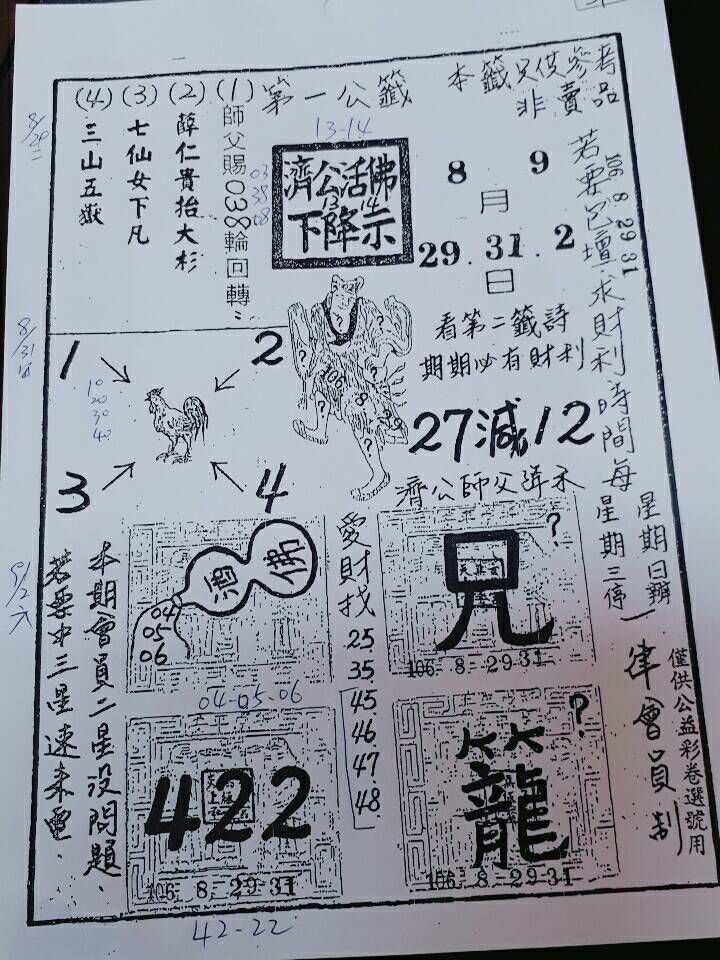 本籤只供參考
非賣品
第一公籤
13-14
(1)師父賜038輪回轉
(2)薛仁貴抬大杉
(3)七仙女下凡
(4)三山五嶽
03
38
08
濟公活佛
下降示
13 14
8月 9
29.31.2
日
106 8 29 31
若要包壇求財利時間每
星期日辦
星期三停
一律會員制
僅供公益彩卷選號用
看第二籤詩
期期必有財利
27減12
濟公師父降示
8/29
二
8/31
四
9/2
六
1
2
3
4
10
20
30
40
106 8
? ? ? ?
酒
佛
04
05
06
04-05-06
愛財找
25
35
45
46
47
48
兄
?
106.8.29-31
422
106 8.29-31
籠
?
106.8.29-31
本期會員二星沒問題、
若要中三星速來電、
42-22